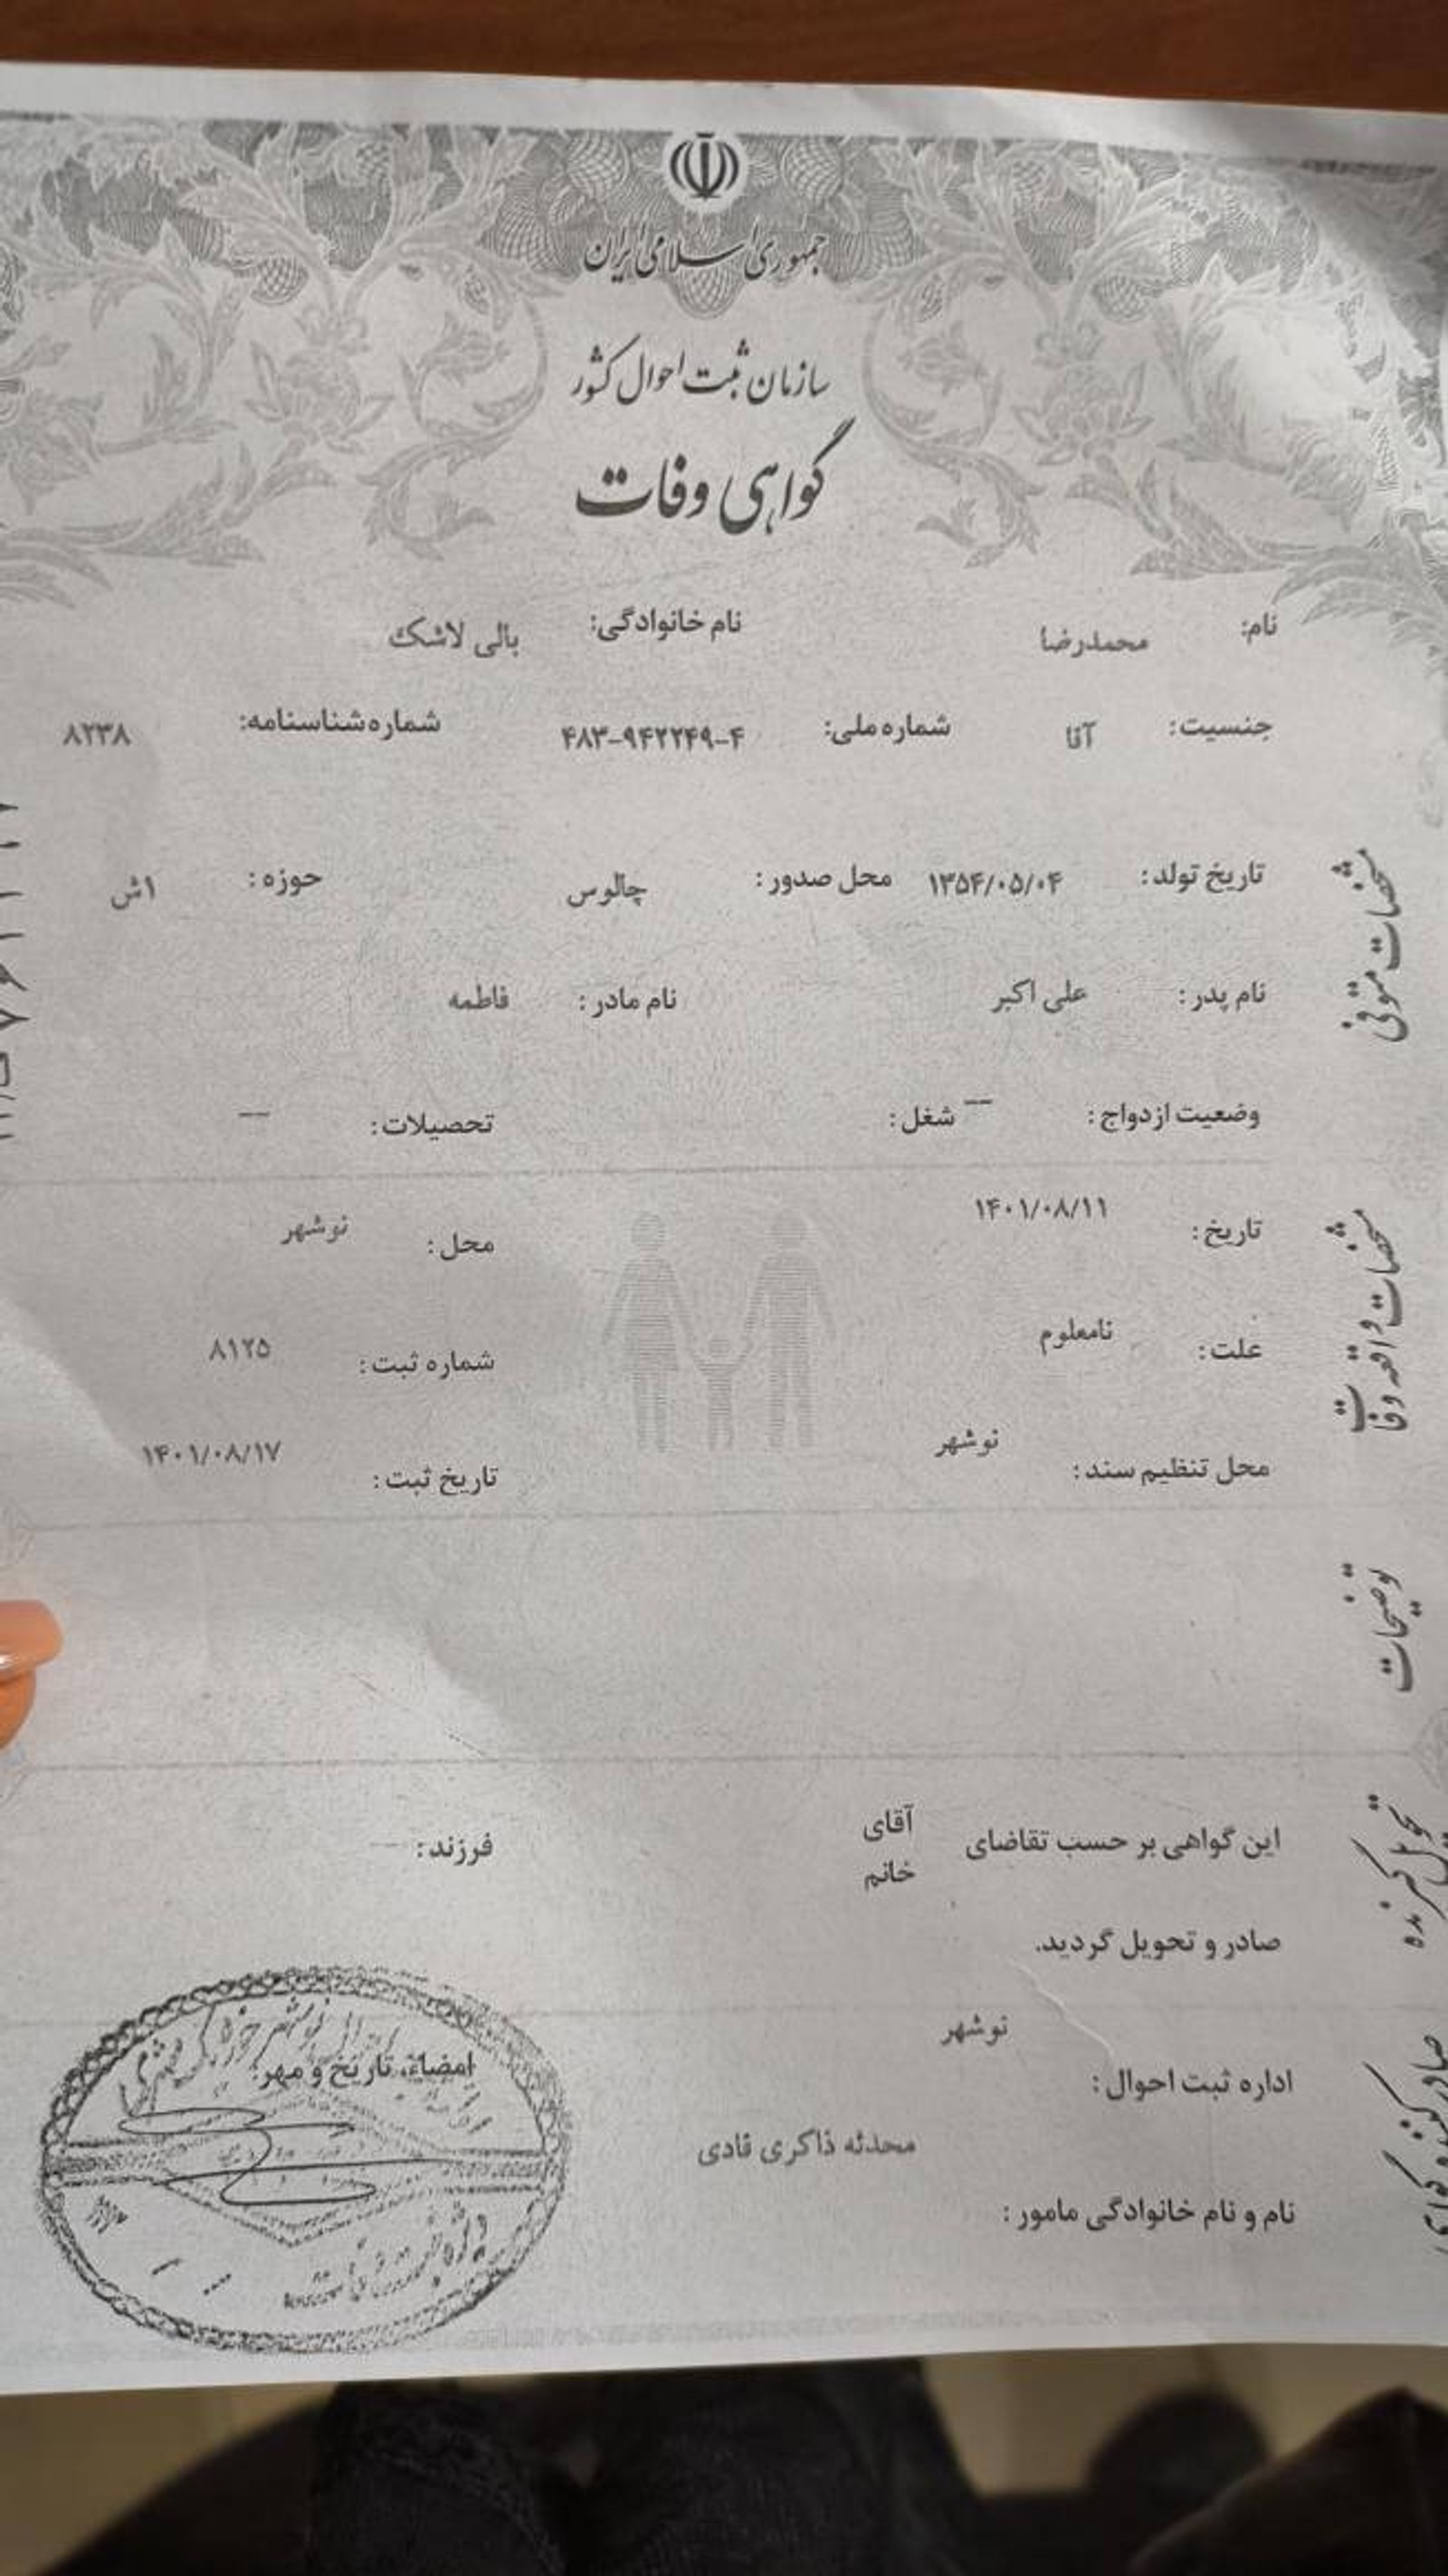 جمهوری اسلامی ایران
سازمان ثبت احوال کشور
گواهی وفات
نام: محمدرضا نام خانوادگی: بالی لاشک
جنسیت: آقا شماره ملی: ۴۸۳-۹۴۲۲۴۹-۴ شماره شناسنامه: ۸۲۳۸
مشخصات متوفی
تاریخ تولد: ۱۳۵۴/۰۵/۰۴ محل صدور: چالوس حوزه: ۱ش
نام پدر: علی اکبر نام مادر: فاطمه
وضعیت ازدواج: — شغل: تحصیلات: —
مشخصات واقعه وفات
تاریخ: ۱۴۰۱/۰۸/۱۱ محل: نوشهر
علت: نامعلوم شماره ثبت: ۸۱۲۵
محل تنظیم سند: نوشهر تاریخ ثبت: ۱۴۰۱/۰۸/۱۷
توضیحات
تحویل گیرنده
این گواهی بر حسب تقاضای آقای خانم فرزند:
صادر و تحویل گردید.
اداره ثبت احوال: نوشهر
امضاء، تاریخ و مهر:
نام و نام خانوادگی مامور: محدثه ذاکری قادی